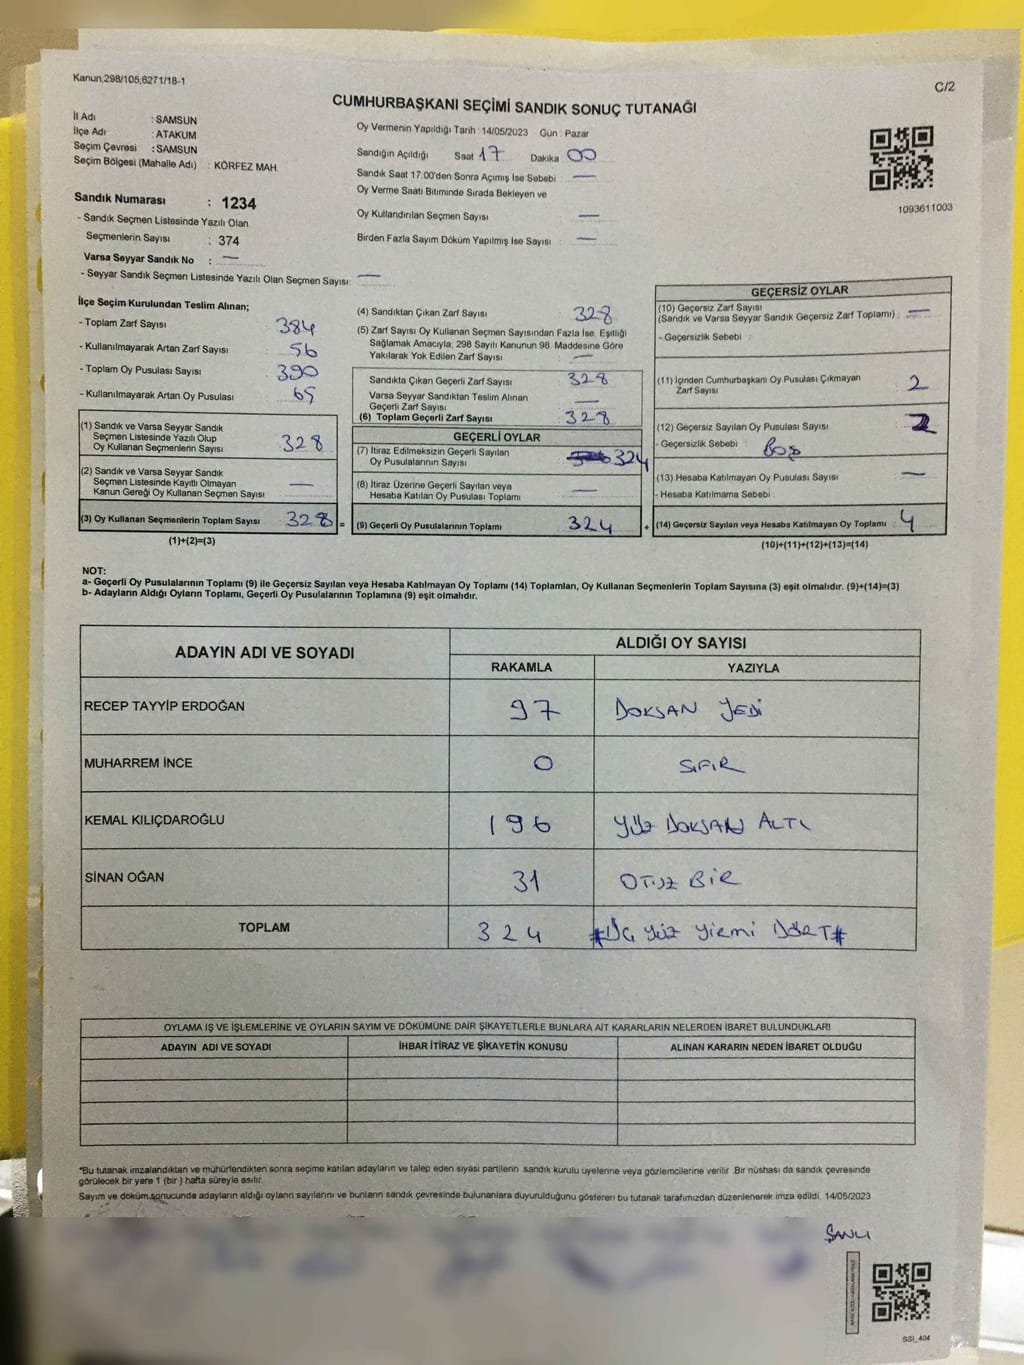 Kanun;298/105;6271/18-1
C/2
CUMHURBAŞKANI SEÇİMİ SANDIK SONUÇ TUTANAĞI
İl Adı : SAMSUN
İlçe Adı : ATAKUM
Seçim Çevresi : SAMSUN
Seçim Bölgesi (Mahalle Adı) : KÖRFEZ MAH.
Sandık Numarası : 1234
- Sandık Seçmen Listesinde Yazılı Olan
Seçmenlerin Sayısı : 374
Varsa Seyyar Sandık No : —
- Seyyar Sandık Seçmen Listesinde Yazılı Olan Seçmen Sayısı: —
Oy Vermenin Yapıldığı Tarih : 14/05/2023 Gün : Pazar
Sandığın Açıldığı Saat 17 Dakika 00
Sandık Saat 17:00'den Sonra Açımış İse Sebebi : —
Oy Verme Saati Bitiminde Sırada Bekleyen ve
Oy Kullandırılan Seçmen Sayısı —
Birden Fazla Sayım Döküm Yapılmış İse Sayısı : —
1093611003
İlçe Seçim Kurulundan Teslim Alınan;
- Toplam Zarf Sayısı 384
- Kullanılmayarak Artan Zarf Sayısı 56
- Toplam Oy Pusulası Sayısı 390
- Kullanılmayarak Artan Oy Pusulası 65
(1) Sandık ve Varsa Seyyar Sandık
Seçmen Listesinde Yazılı Olup
Oy Kullanan Seçmenlerin Sayısı 328
(2) Sandık ve Varsa Seyyar Sandık
Seçmen Listesinde Kayıtlı Olmayan
Kanun Gereği Oy Kullanan Seçmen Sayısı —
(3) Oy Kullanan Seçmenlerin Toplam Sayısı 328 =
(1)+(2)=(3)
(4) Sandıktan Çıkan Zarf Sayısı 328
(5) Zarf Sayısı Oy Kullanan Seçmen Sayısından Fazla İse, Eşitliği
Sağlamak Amacıyla, 298 Sayılı Kanunun 98. Maddesine Göre
Yakılarak Yok Edilen Zarf Sayısı —
Sandıkta Çıkan Geçerli Zarf Sayısı 328
Varsa Seyyar Sandıktan Teslim Alınan
Geçerli Zarf Sayısı —
(6) Toplam Geçerli Zarf Sayısı 328
GEÇERLİ OYLAR
(7) İtiraz Edilmeksizin Geçerli Sayılan
Oy Pusulalarının Sayısı 324
(8) İtiraz Üzerine Geçerli Sayılan veya
Hesaba Katılan Oy Pusulası Toplamı —
(9) Geçerli Oy Pusulalarının Toplamı 324 +
GEÇERSİZ OYLAR
(10) Geçersiz Zarf Sayısı
(Sandık ve Varsa Seyyar Sandık Geçersiz Zarf Toplamı) : —
- Geçersizlik Sebebi :
(11) İçinden Cumhurbaşkanı Oy Pusulası Çıkmayan
Zarf Sayısı 2
(12) Geçersiz Sayılan Oy Pusulası Sayısı 2
- Geçersizlik Sebebi : Boş
(13) Hesaba Katılmayan Oy Pusulası Sayısı —
- Hesaba Katılmama Sebebi :
(14) Geçersiz Sayılan veya Hesaba Katılmayan Oy Toplamı 4
(10)+(11)+(12)+(13)=(14)
NOT:
a- Geçerli Oy Pusulalarının Toplamı (9) ile Geçersiz Sayılan veya Hesaba Katılmayan Oy Toplamı (14) Toplamları, Oy Kullanan Seçmenlerin Toplam Sayısına (3) eşit olmalıdır. (9)+(14)=(3)
b- Adayların Aldığı Oyların Toplamı, Geçerli Oy Pusulalarının Toplamına (9) eşit olmalıdır.
ADAYIN ADI VE SOYADI
ALDIĞI OY SAYISI
RAKAMLA YAZIYLA
RECEP TAYYİP ERDOĞAN 97 DOKSAN YEDİ
MUHARREM İNCE 0 SIFIR
KEMAL KILIÇDAROĞLU 196 YÜZ DOKSAN ALTI
SİNAN OĞAN 31 OTUZ BİR
TOPLAM 324 #Üç yüz yirmi DÖRT#
OYLAMA İŞ VE İŞLEMLERİNE VE OYLARIN SAYIM VE DÖKÜMÜNE DAİR ŞİKAYETLERLE BUNLARA AİT KARARLARIN NELERDEN İBARET BULUNDUKLARI
ADAYIN ADI VE SOYADI İHBAR İTİRAZ VE ŞİKAYETİN KONUSU ALINAN KARARIN NEDEN İBARET OLDUĞU
*Bu tutanak imzalandıktan ve mühürlendikten sonra seçime katılan adayların ve talep eden siyasi partilerin sandık kurulu üyelerine veya gözlemcilerine verilir. Bir nüshası da sandık çevresinde
görülecek bir yere 1 (bir) hafta süreyle asılır.
Sayım ve döküm sonucunda adayların aldığı oyların sayılarını ve bunların sandık çevresinde bulunanlara duyurulduğunu gösteren bu tutanak tarafımızdan düzenlenerek imza edildi. 14/05/2023
ŞANLI
SSI_404